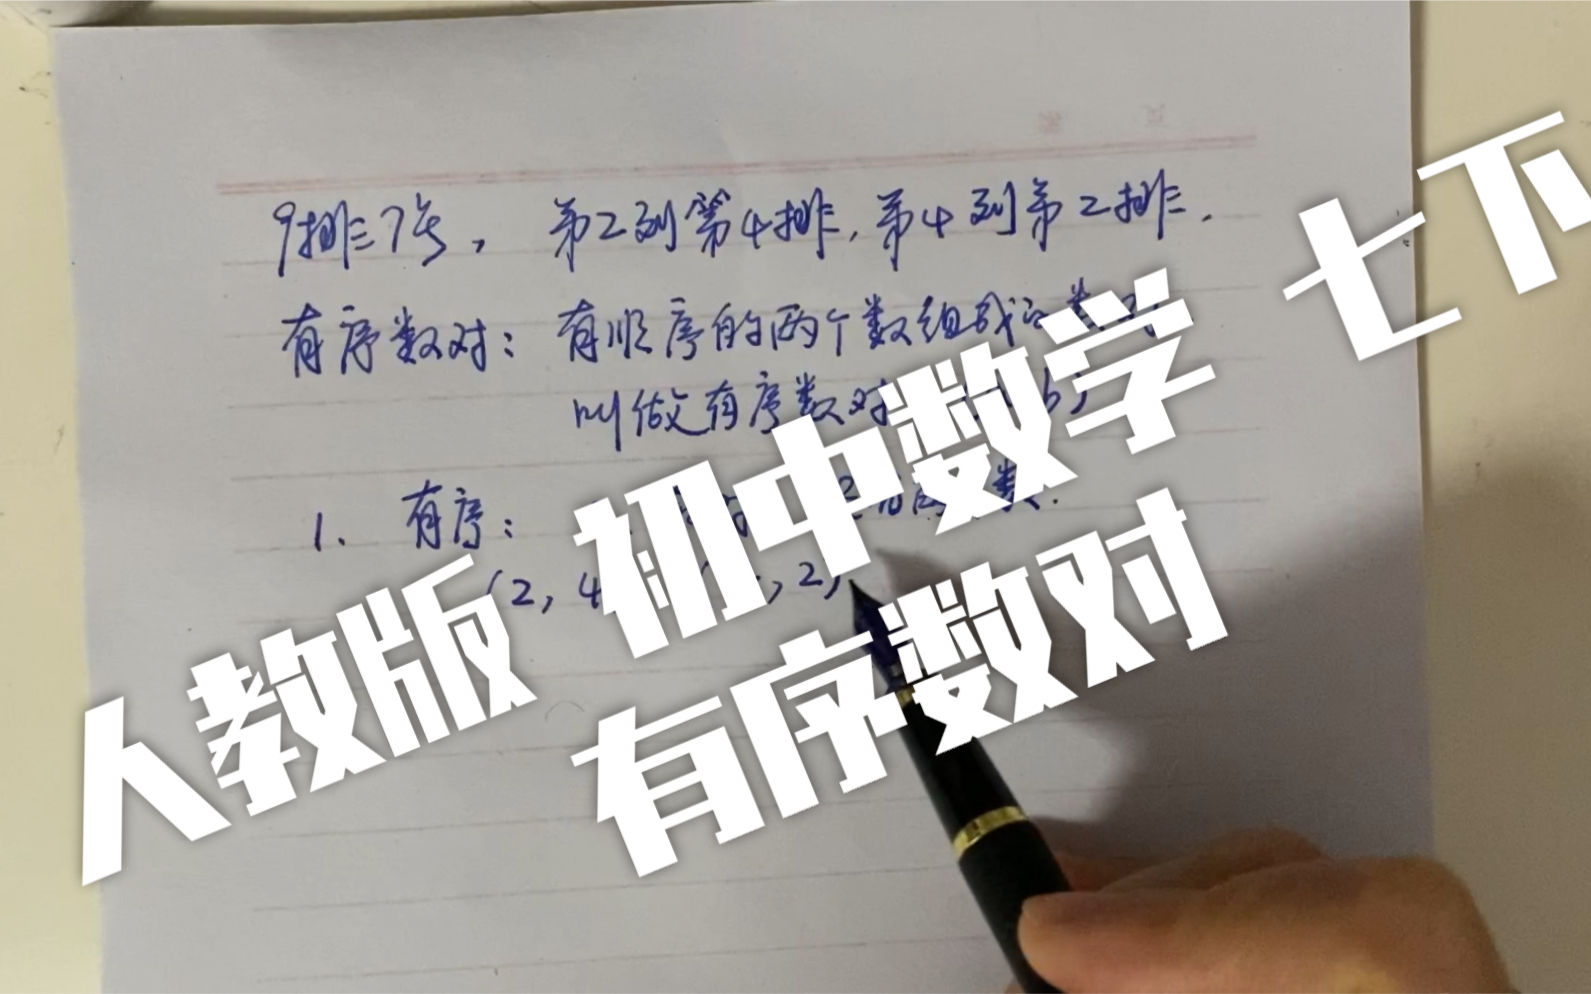 9排7号，第2列第4排，第4列第2排．
有序数对：有顺序的两个数组成的数对
叫做有序数对
1. 有序：
(2, 4 , 2)
人教版 初中数学 七下
有序数对